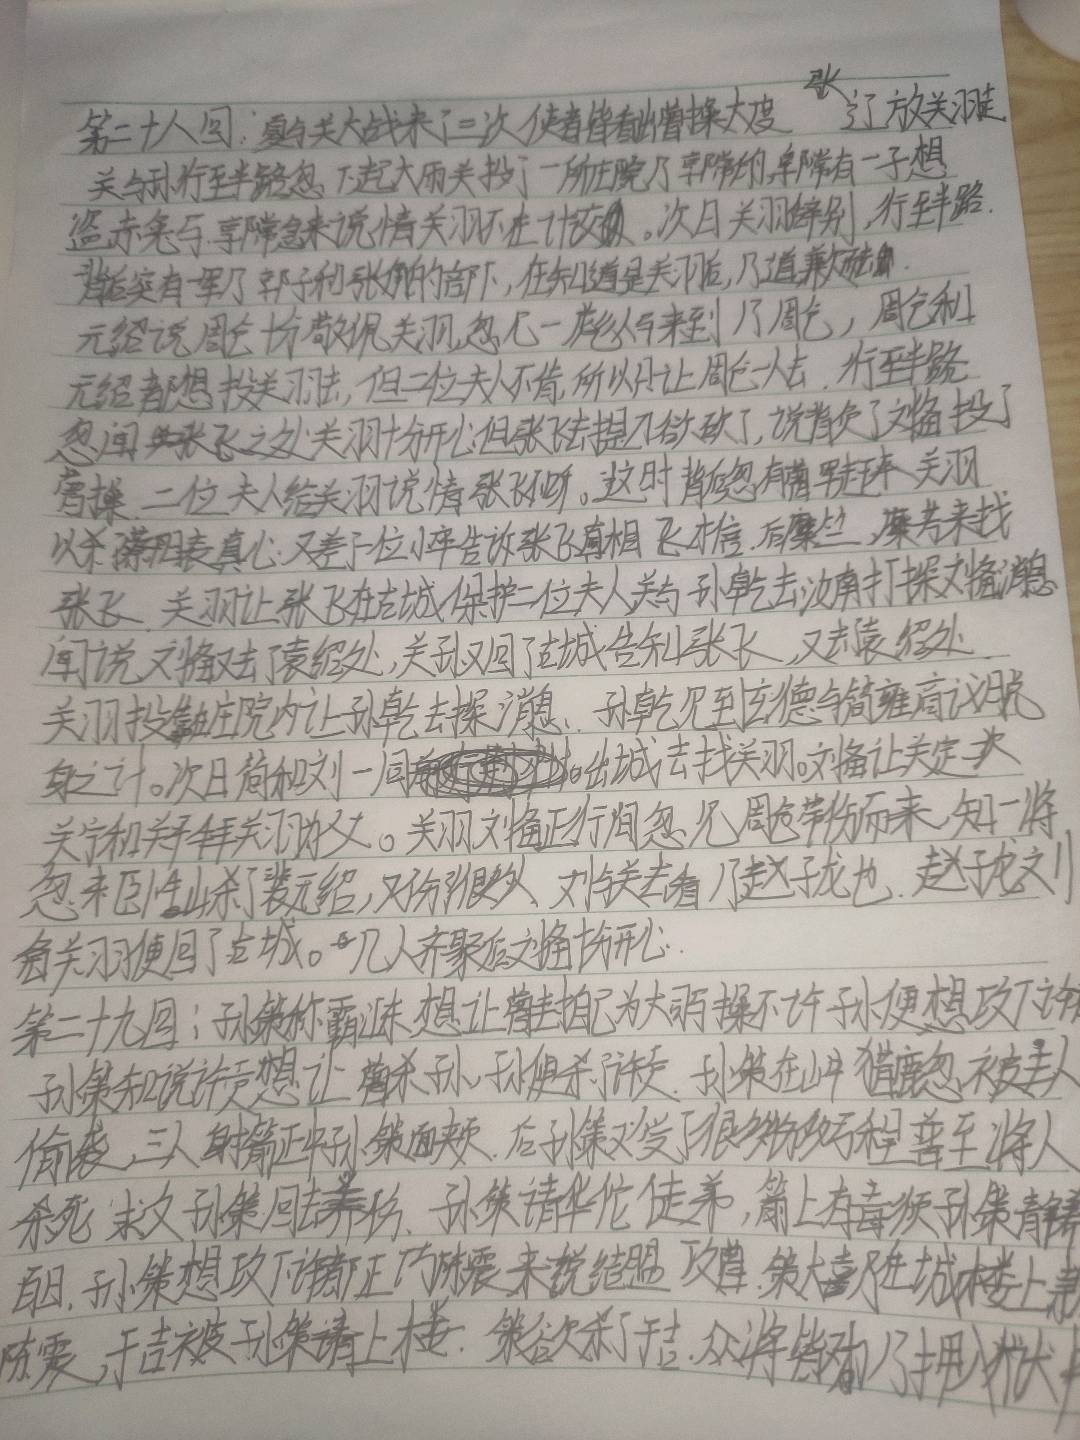 第二十八回：夏与关大战来了二次使者皆看出曹操大度 张
了放关羽走
关与孙行至半路忽下起大雨关投了一所庄院乃郭常的,郭常有一子想
盗赤兔与郭常急来说情关羽不在计较。次日关羽辞别,行至半路.
背后突有一军乃郭子和张的部下,在知道是关羽后,乃道歉
元绍说周仓十分敬佩关羽,忽见一彪人马来到乃周仓,周仓和
元绍都想投关羽去,但二位夫人不肯,所以只让周仓一人去.行至半路
忽闻张飞之处关羽十分开心但张飞去提刀欲砍了,说背负了刘备投了
曹操.二位夫人给关羽说情张飞不听。这时背后忽有曹军赶来关羽
以杀蔡阳表真心.又差了一位小卒告诉张飞真相飞才信.后糜竺,糜芳来找
张飞.关羽让张飞在古城保护二位夫人关与孙乾去汝南打探刘备消息
闻说刘备又去了袁绍处,关孙又回了古城告知张飞,又去袁绍处.
关羽投庄院内让孙乾去探消息.孙乾见到玄德与简雍商议脱
身之计。次日简和刘一同出城去找关羽。刘备让关定次
关宁和关平拜关羽为父。关羽刘备正行间忽见周仓带伤而来,知一将
忽来卧牛山杀了裴元绍,又伤了很多人.刘与关去看乃赵子龙也.赵子龙刘
备关羽便回了古城。几人齐聚后刘备十分开心.
第二十九回:孙策称霸 想让曹封自己为大司 操不许孙便想攻下许
孙策知说许贡想让曹杀孙,孙便杀了许贡.孙策在山中猎鹿忽被三人
偷袭,三人射箭正中孙策面颊.后孙策又受了很多 程普至将人
杀死求父孙策回去养伤.孙策请华佗徒弟,箭上有毒须孙策静养
百日.孙策想攻下许都正巧陈震来说结盟攻曹.策大喜 在城楼上
陈震,于吉被孙策请上楼.策欲杀了于吉.众将皆劝乃押入狱